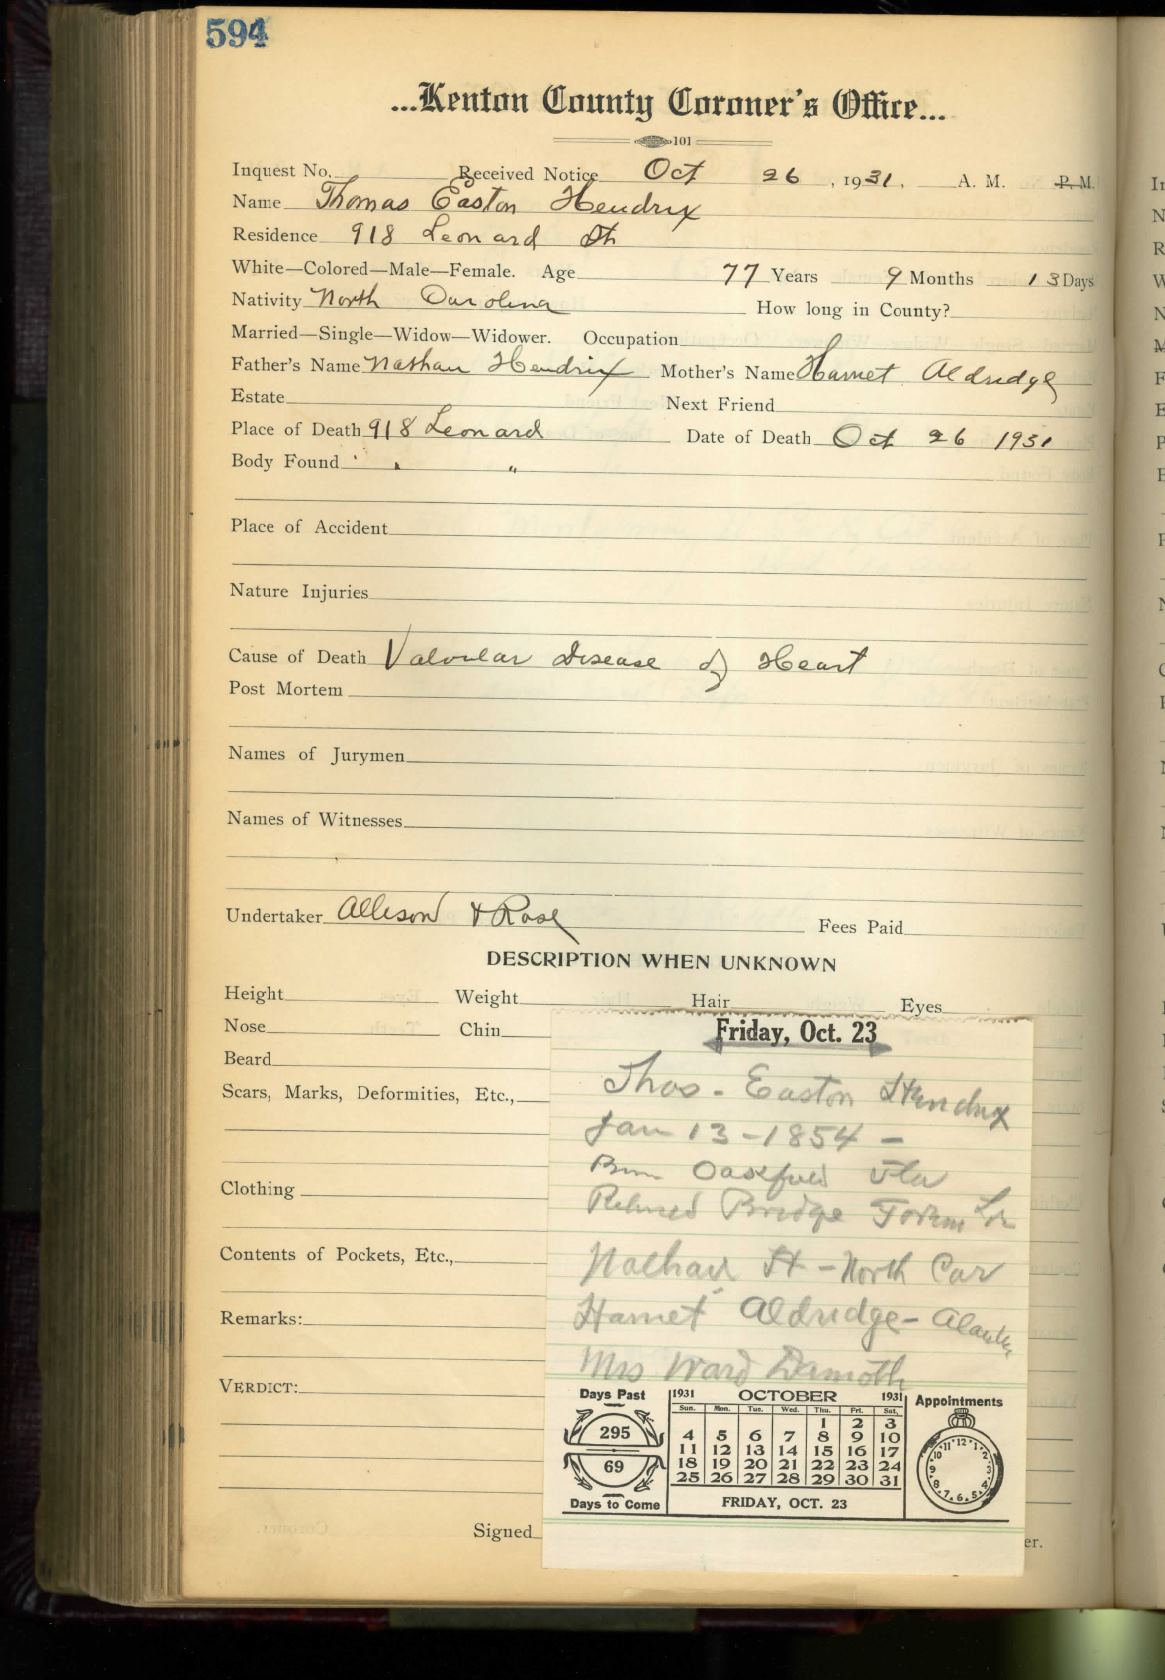 594
...Kenton County Coroner's Office...
101
Inquest No. Received Notice Oct 26, 1931, A. M. P. M.
Name Thomas Easton Hendrix
Residence 918 Leonard St
White—Colored—Male—Female. Age 77 Years 9 Months 13 Days
Nativity North Carolina How long in County?
Married—Single—Widow—Widower. Occupation
Father's Name Nathan Hendrix Mother's Name Harriet Aldridge
Estate Next Friend
Place of Death 918 Leonard Date of Death Oct 26 1931
Body Found " "
Place of Accident
Nature Injuries
Cause of Death Valvular Disease of Heart
Post Mortem
Names of Jurymen
Names of Witnesses
Undertaker Allison & Rose Fees Paid
DESCRIPTION WHEN UNKNOWN
Height Weight Hair Eyes
Nose Chin
Beard
Scars, Marks, Deformities, Etc.,
Clothing
Contents of Pockets, Etc.,
Remarks:
VERDICT:
Signed er.
Friday, Oct. 23
Thos - Easton Hendrix
Jan 13 - 1854 -
Bridge
Nathan H - North Car
Harriet Aldridge -
Mrs Ward Damoth
Days Past
295
69
Days to Come
1931 OCTOBER 1931
Sun. Mon. Tue. Wed. Thu. Fri. Sat.
1 2 3
4 5 6 7 8 9 10
11 12 13 14 15 16 17
18 19 20 21 22 23 24
25 26 27 28 29 30 31
FRIDAY, OCT. 23
Appointments
12 1 2 3 4 5 6 7 8 9 10 11